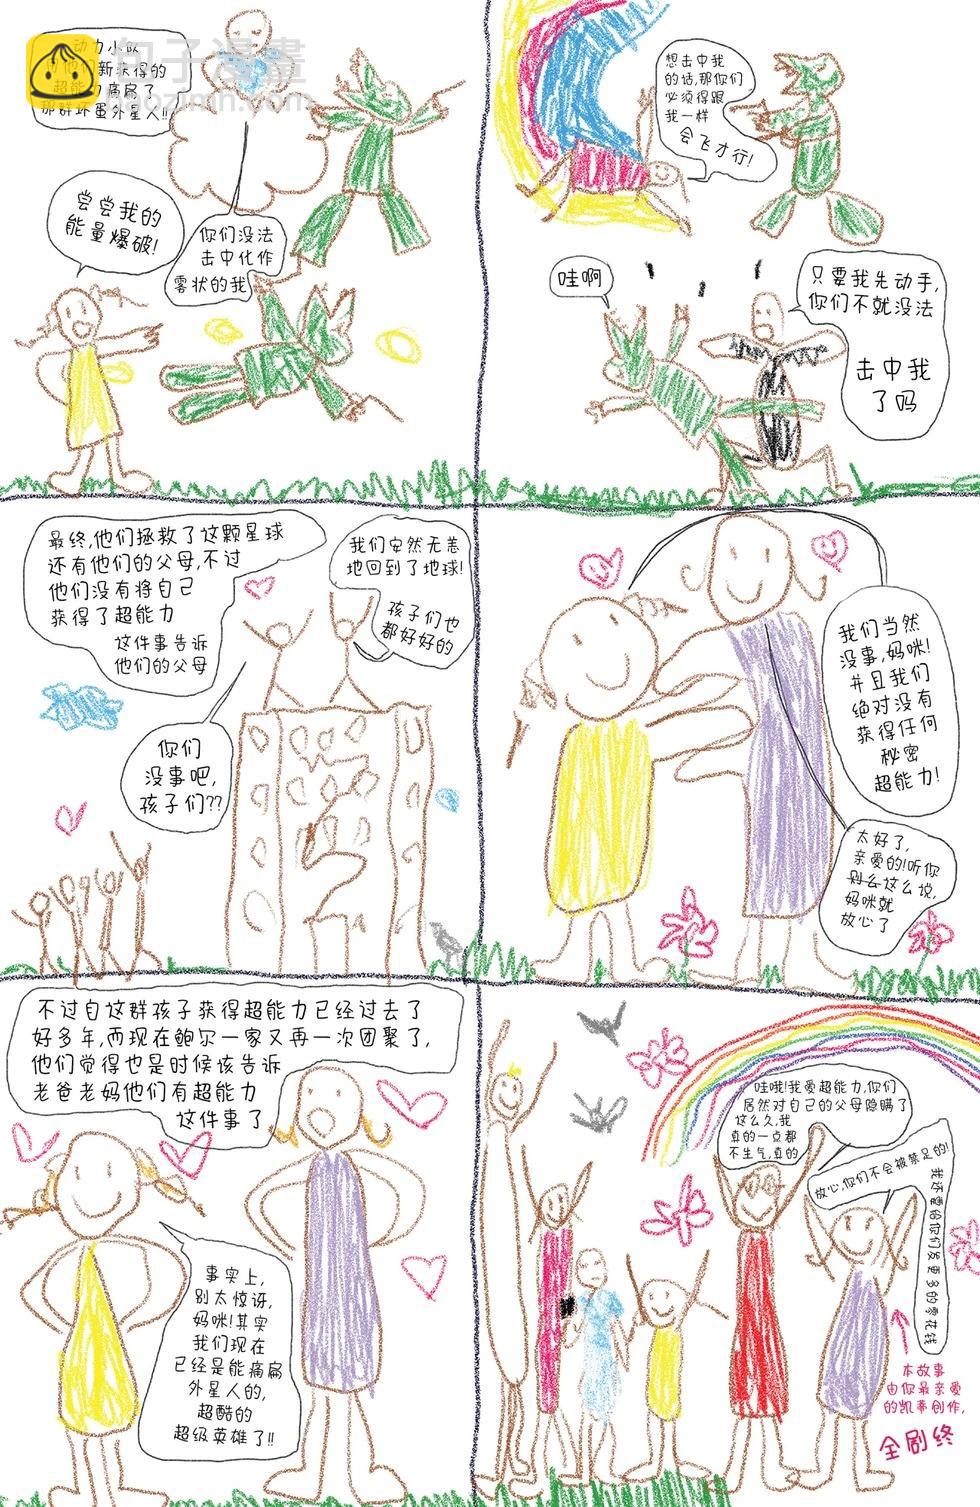 动力小队
新获得的
超能力痛扁了
那群坏蛋外星人!!
包子漫畫
baozimh.com
尝尝我的
能量爆破!
你们没法
击中化作
雾状的我
想击中我
的话,那你们
必须得跟
我一样
会飞才行!
哇啊
只要我先动手,
你们不就没法
击中我
了吗
最终,他们拯救了这颗星球
还有他们的父母,不过
他们没有将自己
获得了超能力
这件事告诉
他们的父母
我们安然无恙
地回到了地球!
孩子们也
都好好的
你们
没事吧,
孩子们??
我们当然
没事,妈咪!
并且我们
绝对没有
获得任何
秘密
超能力!
太好了,
亲爱的!听你
这么说,
妈咪就
放心了
不过自这群孩子获得超能力已经过去了
好多年,而现在鲍尔一家又再一次团聚了,
他们觉得也是时候该告诉
老爸老妈他们有超能力
这件事了
事实上,
别太惊讶,
妈咪!其实
我们现在
已经是能痛扁
外星人的,
超酷的
超级英雄了!!
哇哦!我爱超能力,你们
居然对自己的父母隐瞒了
这么久,我
真的一点都
不生气,真的
放心,你们不会被禁足的!
我还要给你们发更多的零花钱
本故事
由你最亲爱
的凯蒂创作,
全剧终